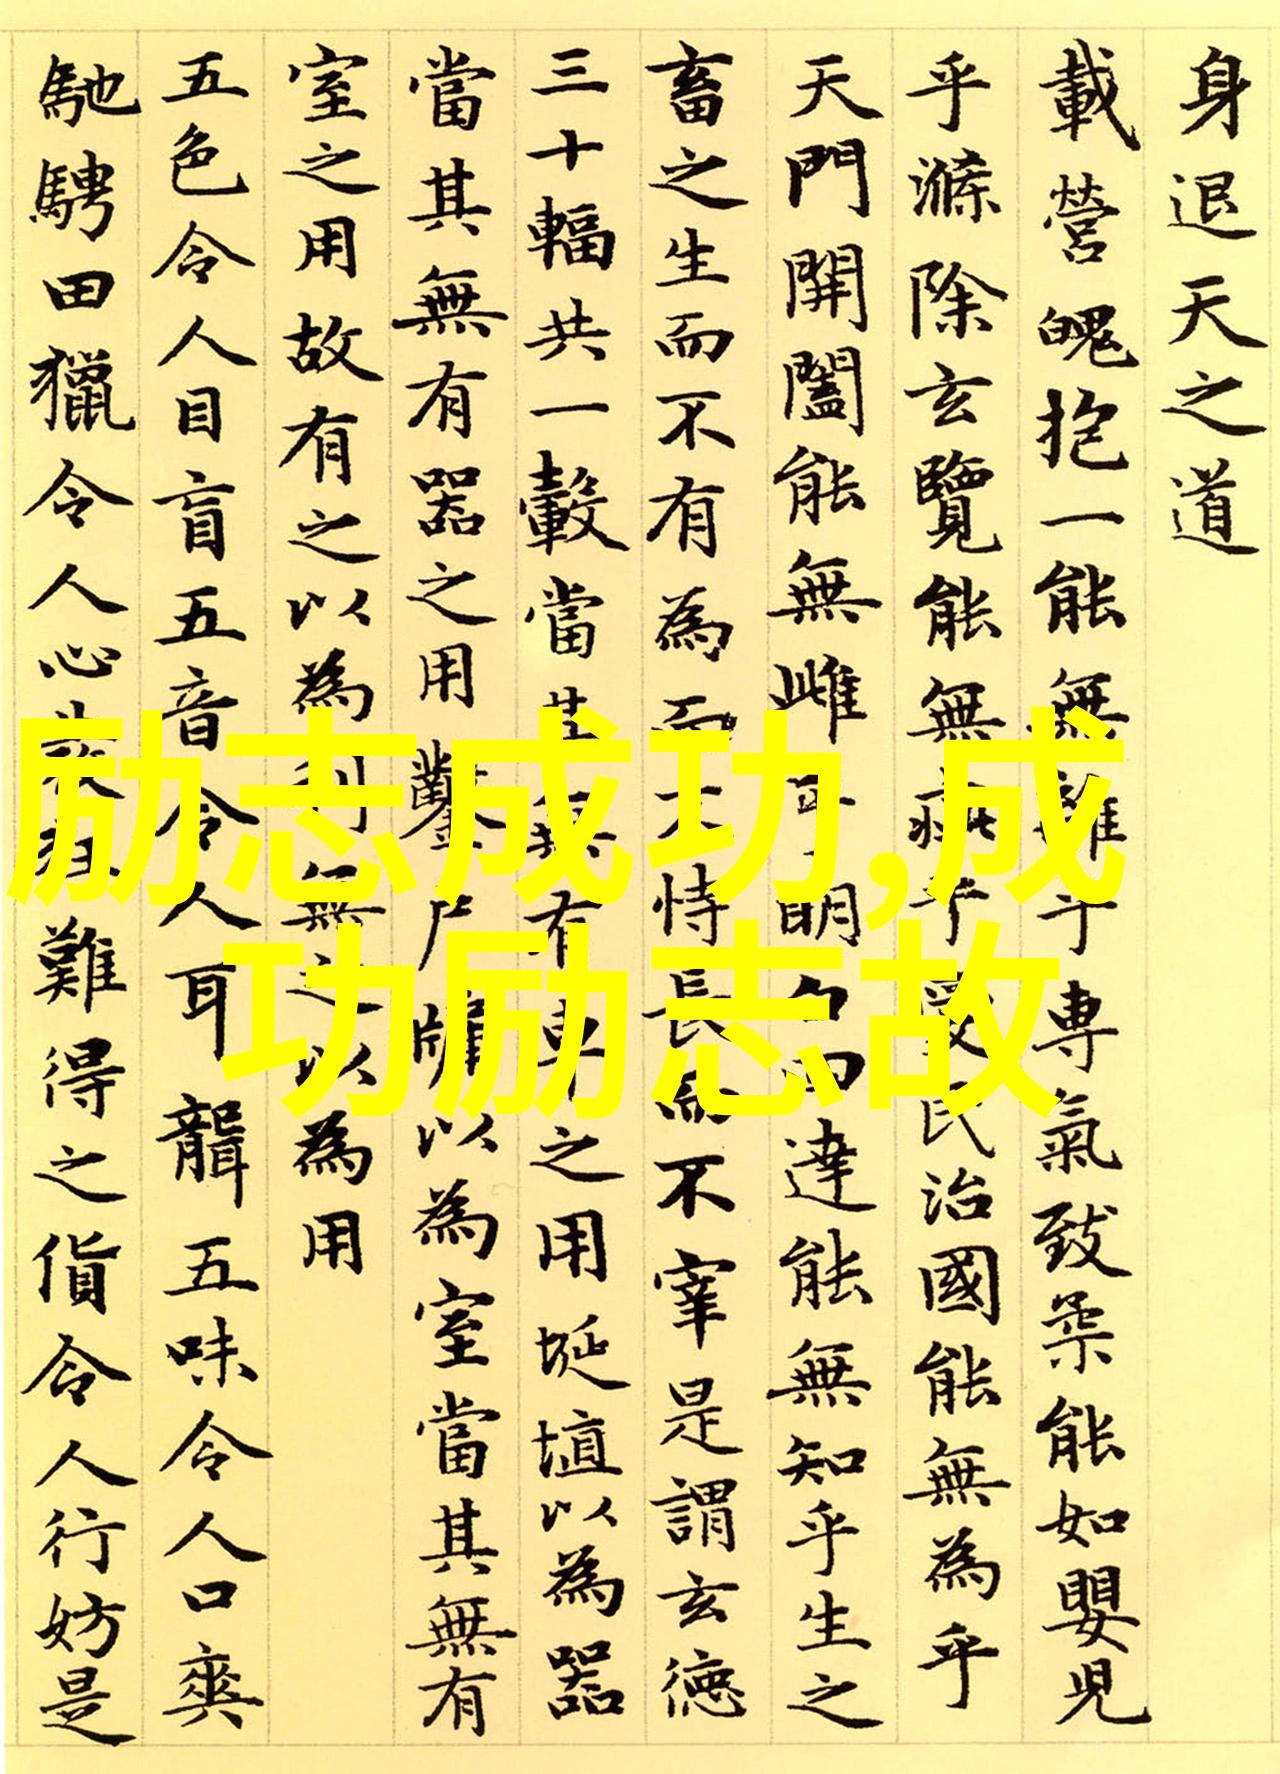 身退天之道
載營魄抱一能無離乎専氣致柔能如嬰兒
乎滌除玄覽能無疵乎愛民治國能無為乎
天門開闔能無雌乎明白四達能無知乎生之
畜之生而不有為而不恃長而不宰是謂玄德
三十輻共一轂當其無有車之用埏埴以為器
當其無有器之用鑿戶牖以為室當其無有
室之用故有之以為利無之以為用
五色令人目盲五音令人耳聾五味令人口爽
馳騁田獵令人心發狂難得之貨令人行妨是
励志成功,成
功励志故